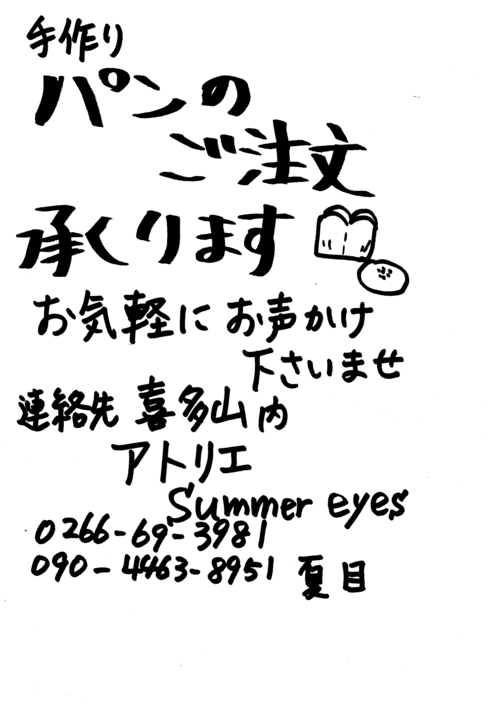 手作り
パンの
ご注文
承くります
お気軽に お声かけ
下さいませ
連絡先 喜多山内
アトリエ
Summer eyes
0266-69-3981
090-4463-8951 夏目